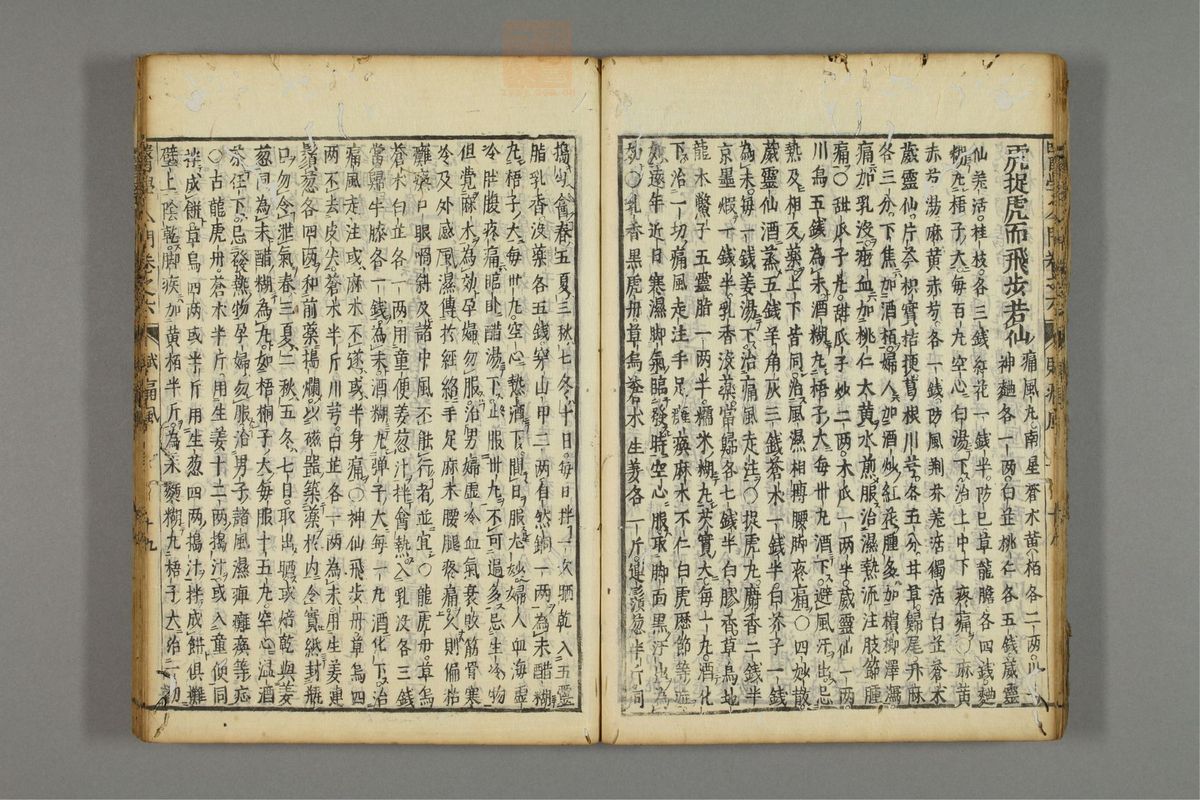 虎捉虎而飛步若仙 痛風丸南星蒼木黃栢各二兩川芎
神麯各一兩白芷桃仁各五錢威靈
仙羗活桂枝各三錢紅花一錢半防已草龍膽各四錢麯
糊丸梧子大每百丸空心白湯下治上中下疼痛〇麻黃
赤芍湯麻黃赤芍各一錢防風荆芥羗活獨活白芷蒼木
葳靈仙片芩枳實桔梗葛根川芎各五分甘草歸尾升麻
各三分下焦加酒栢婦人加酒炒紅花腫多加檳榔澤瀉
痛加乳沒瘀血加桃仁大黃水煎服治濕熱流注肢節腫
痛〇甜瓜子丸甜瓜子炒二兩木瓜一兩半葳靈仙一兩
川烏五錢為末酒糊丸梧子大每卅丸酒下避風汗出忌
熱及相反藥上下昔同治風濕相搏腰脚疼痛〇四妙散
葳靈仙酒蒸五錢羊角灰三錢蒼木一錢半白芥子一錢
為末每一錢姜湯下治痛風走注〇捉虎丸麝香二錢半
京墨煆一錢半乳香沒藥當歸各七錢半白膠香草烏地
龍木鱉子五靈脂一兩半糯米糊丸芡實大每一丸酒化
下治一切痛風走注手足癱瘓麻木不仁白虎歷節等症
遠年近日寒濕脚氣臨發時空心服取脚面黑汗出為
効〇乳香黑虎丹草烏蒼木生姜各一斤連鬚葱半斤同
搗爛盦春五夏三秋七冬十日每日拌一次晒乾入五靈
脂乳香沒藥各五錢穿山甲二兩自然銅一兩為末醋糊
丸梧子大每卅丸空心熱酒下間日服尤妙婦人血海虛
冷肚腹疼痛臨卧醋湯下止服卅九不可過多忌生冷物
但覺麻木為効孕婦勿服治男婦虛冷血氣衰敗筋骨寒
冷及外感風濕傳於經絡手足麻木腰腿疼痛久則偏枯
癱瘓口眼喎斜及諸中風不能行者並宜〇龍虎丹草烏
蒼木白芷各一兩用童便姜葱汁拌盦熱入乳沒各三錢
當歸牛膝各一錢為末酒糊丸弹子大每一丸酒化下治
痛風走注或麻木不遂或半身痛〇神仙飛步丹草烏四
两不去皮尖蒼木半斤川芎白芷各一兩為末用生姜連
鬚葱各四兩和前藥搗爛以磁器築藥於内令實紙封瓶
口勿令泄氣春三夏二秋五冬七日取出晒或焙乾與姜
葱同為末醋糊為丸如梧桐子大每服十五丸空心温酒
茶任下忌發熱物孕婦勿服治男子諸風濕痺癱瘓等症
〇古龍虎丹蒼木半斤用生姜十二两搗汁或入童便同
拌成餅草烏四两或半斤用生葱四兩搗汁拌成餅俱攤
壁上陰乾脚疾加黃栢半斤為末麵糊丸梧子大治一切
醫學入門卷之六 賦痛風 十九